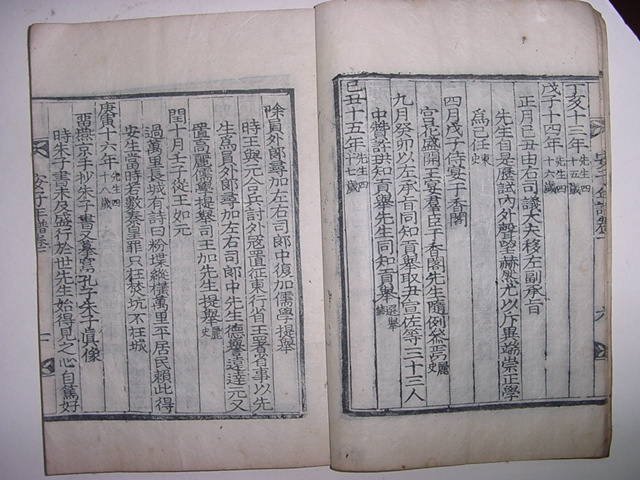 丁亥十三年 先生四十五歲
戊子十四年 先生四十六歲
正月己丑由右司議大夫移左副承旨
先生自是歷試內外聲望赫然尤以斥異端崇正學
爲己任 東史
四月戊子侍宴于香閣
宮花盛開王宴羣臣于香閣先生隨例參焉 麗史
九月癸卯以左承旨同知貢舉取尹宣佐等三十三人
中贊許珙知貢舉先生同知貢舉 選舉
己丑十五年 先生四十七歲
除員外郎尋加左右司郎中復加儒學提舉
時王與元合兵討外寇置征東行省王署省事以先
生爲員外郎尋加左右司郎中先生德譽達元又
置高麗儒學提舉司王加先生提舉 麗史
閏十月壬子從王如元
過萬里長城有詩曰粉堞縱橫萬里平居民賴此得
安生當時若數秦皇罪只在焚坑不在城
庚寅十六年 先生四十八歲
在燕京手抄朱子書又摹寫孔子朱子眞像
時朱子書未及盛行於世先生始得見之心自篤好
安子年譜卷一